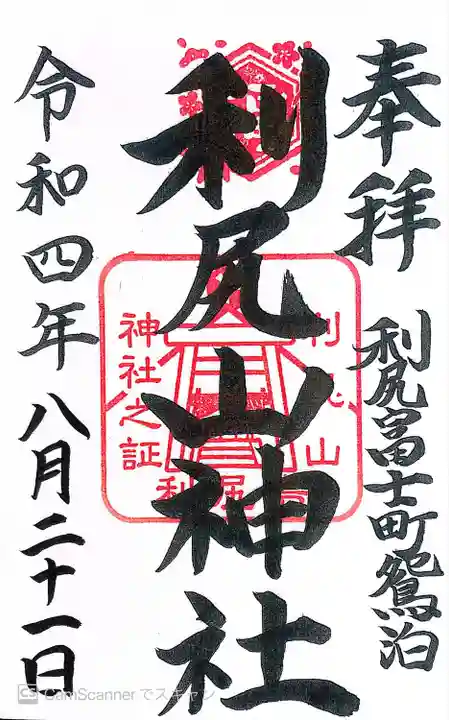 奉拝
利尻富士町鴛泊
利尻山神社
利尻山
神社之証
令和四年八月二十一日
CS CamScanner でスキャン